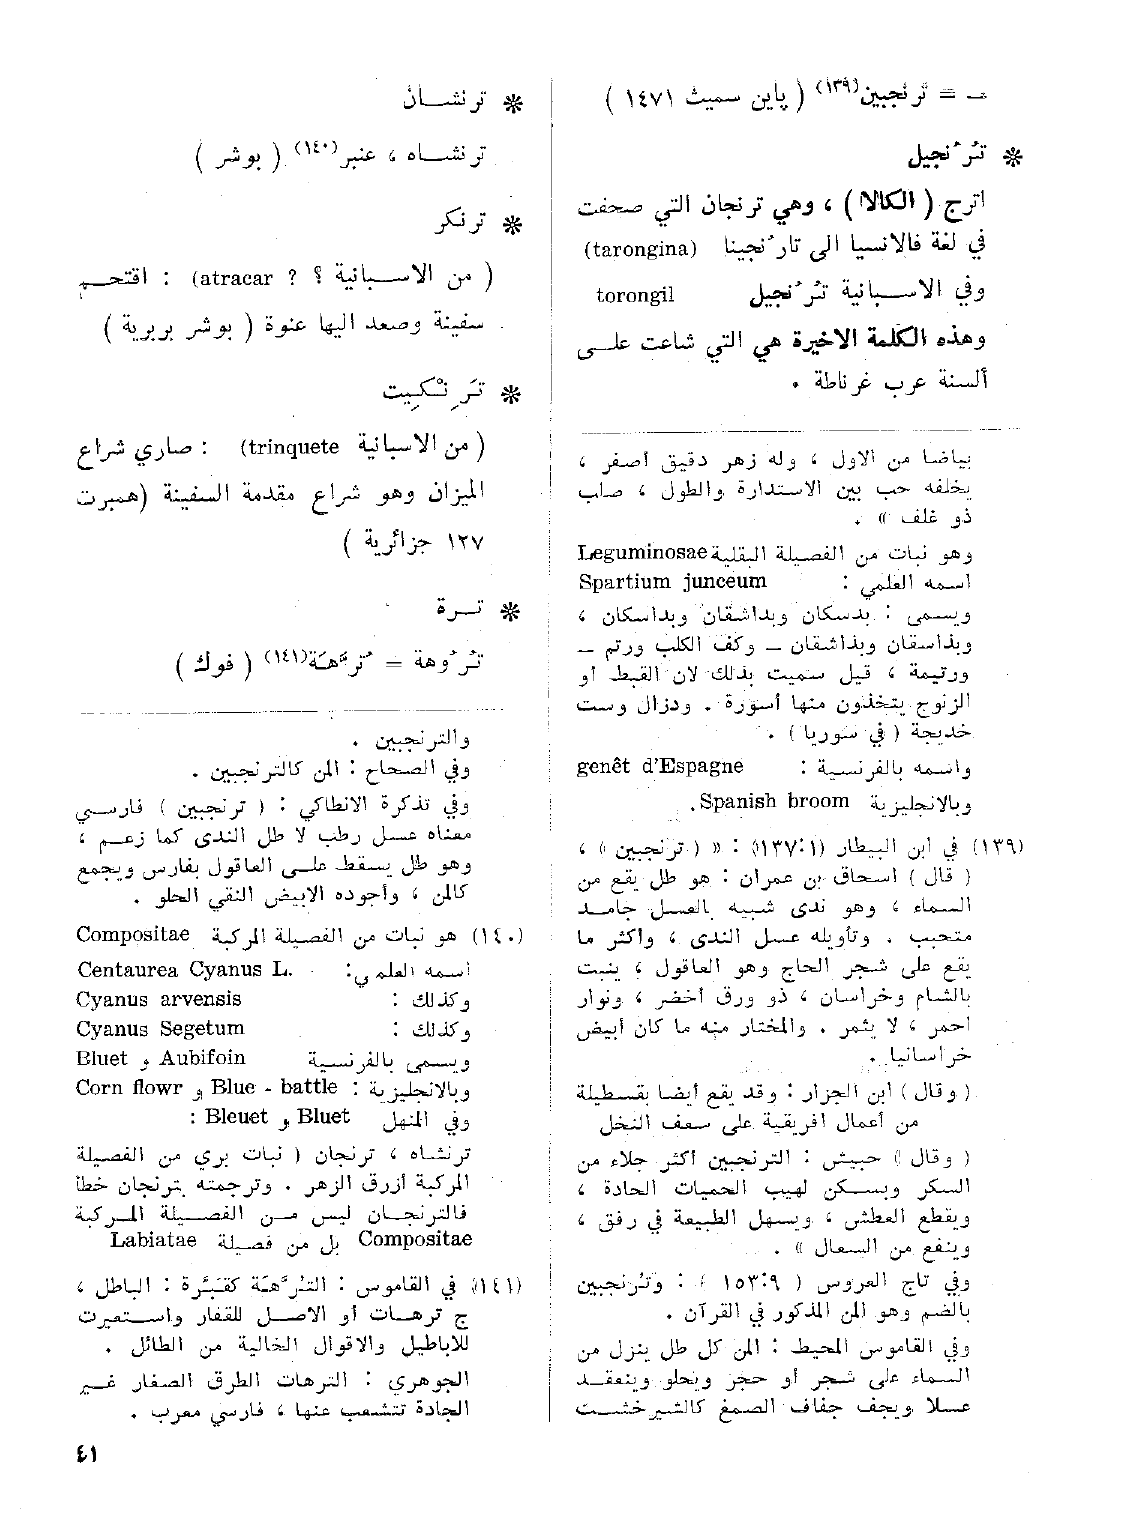 ـ = ترنجبين(١٣٩) ( پاين سميث ١٤٧١ )
* تُرُنجيل
اترج ( الكالا ) ، وهي ترنجان التي صحفت
في لغة فالانسيا الى تارُنجينا (tarongina)
وفي الاسبانية تُرُنجيل torongil
وهذه الكلمة الاخيرة هي التي شاعت على
ألسنة عرب غرناطة .
بياضا من الاول ، وله زهر دقيق أصفر ،
يخلفه حب بين الاستدارة والطول ، صلب
ذو غلف » .
وهو نبات من الفصيلة البقلية Leguminosae
اسمه العلمي : Spartium junceum
ويسمى : بدسكان وبداشقان وبداسكان ،
وبذاسقان وبذاشقان – وكف الكلب ورتم –
ورتيمة ، قيل سميت بذلك لان القبط أو
الزنوج يتخذون منها أسورة . ودزال وست
خديجة ( في سوريا ) .
واسمه بالفرنسية : genêt d'Espagne
وبالانجليزية Spanish broom.
(١٣٩) في ابن البيطار (١:١٣٧) : « ( ترنجبين ) ،
( قال ) اسحاق بن عمران : هو طل يقع من
السماء ، وهو ندى شبيه بالعسل جامد
متحبب . وتأويله عسل الندى ، وأكثر ما
يقع على شجر الحاج وهو العاقول ، ينبت
بالشام وخراسان ، ذو ورق أخضر ، ونوار
احمر ، لا يثمر . والمختار منه ما كان أبيض
خراسانيا .
( وقال ) ابن الجزار : وقد يقع أيضا بقسطيلة
من أعمال افريقية على سعف النخل
( وقال ) حبيش : الترنجبين أكثر جلاء من
السكر ويسكن لهيب الحميات الحادة ،
ويقطع العطش ، ويسهل الطبيعة في رفق ،
وينفع من السعال » .
وفي تاج العروس ( ٩:١٥٣ ) : وتُرنجبين
بالضم وهو المن المذكور في القرآن .
وفي القاموس المحيط : المن كل طل ينزل من
السماء على شجر أو حجر ويحلو وينعقد
عسلا ويجف جفاف الصمغ كالشيرخشت
* ترنشان
ترنشاه ، عنبر(١٤٠) ( بوشر )
* ترنكر
( من الاسبانية ؟ atracar ?) : اقتحم
سفينة وصعد اليها عنوة ( بوشر بربرية )
* تَرِنْكِيت
( من الاسبانية trinquete) : صاري شراع
الميزان وهو شراع مقدمة السفينة (همبرت
١٢٧ جزائرية )
* تره
تُرُوهة = تُرَّهَة(١٤١) ( فوك )
والترنجبين .
وفي الصحاح : المن كالترنجبين .
وفي تذكرة الانطاكي : ( ترنجبين ) فارسي
معناه عسل رطب لا طل الندى كما زعم ،
وهو طل يسقط على العاقول بفارس ويجمع
كالمن ، وأجوده الابيض النقي الحلو .
(١٤٠) هو نبات من الفصيلة المركبة Compositae
اسمه العلمي: Centaurea Cyanus L.
وكذلك : Cyanus arvensis
وكذلك : Cyanus Segetum
ويسمى بالفرنسية Aubifoin و Bluet
وبالانجليزية : Blue - battle و Corn flowr
وفي المنهل Bluet و Bleuet :
ترنشاه ، ترنجان ( نبات بري من الفصيلة
المركبة أزرق الزهر . وترجمته بترنجان خطأ
فالترنجان ليس من الفصيلة المركبة
Compositae بل من فصيلة Labiatae
(١٤١) في القاموس : التُرَّهَة كقُبَّرة : الباطل ،
ج ترهات أو الاصل للقفار واستعيرت
للاباطيل والاقوال الخالية من الطائل .
الجوهري : الترهات الطرق الصغار غير
الجادة تتشعب عنها ، فارسي معرب .
٤١